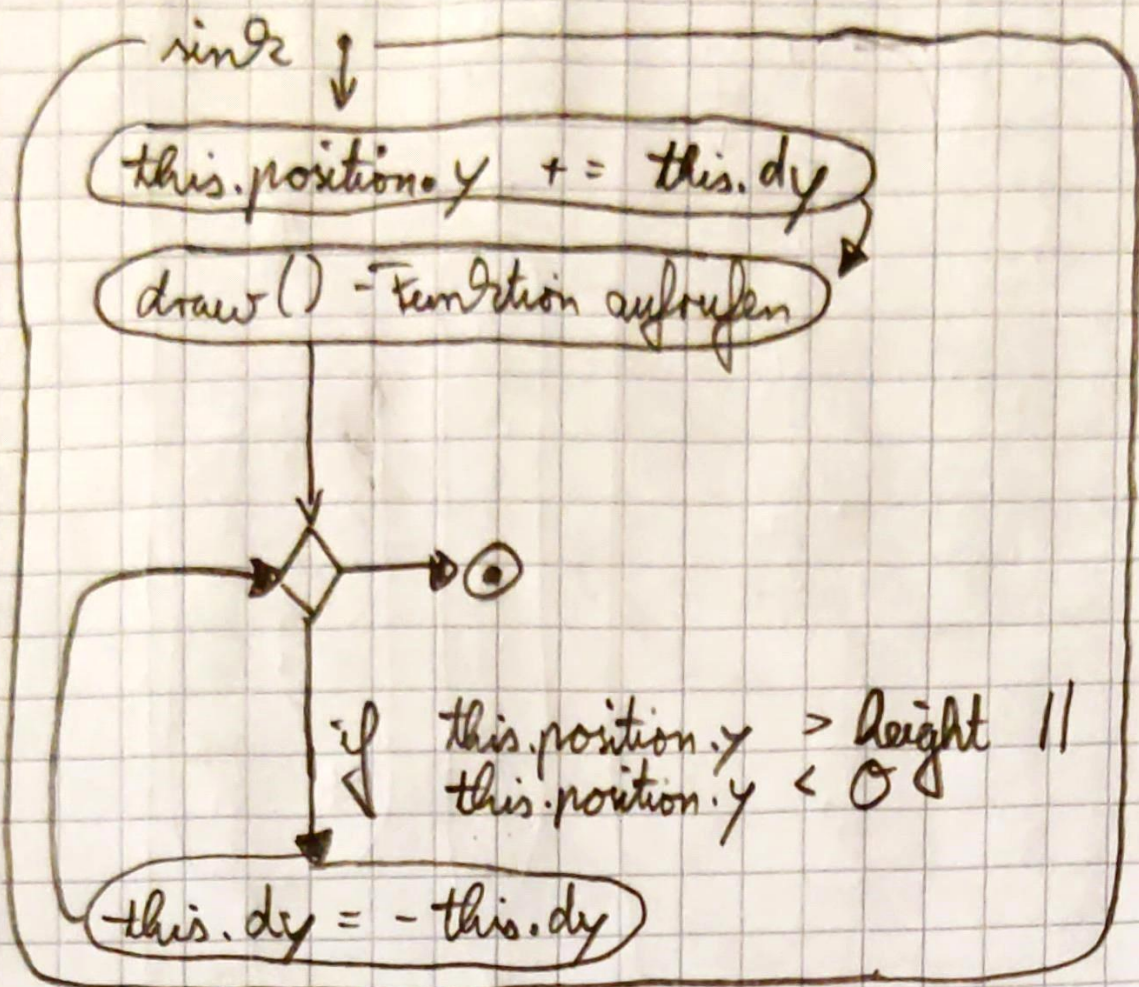 sink
this.position.y += this.dy
draw() - Funktion aufrufen
if this.position.y > height ||
this.position.y < 0
this.dy = - this.dy